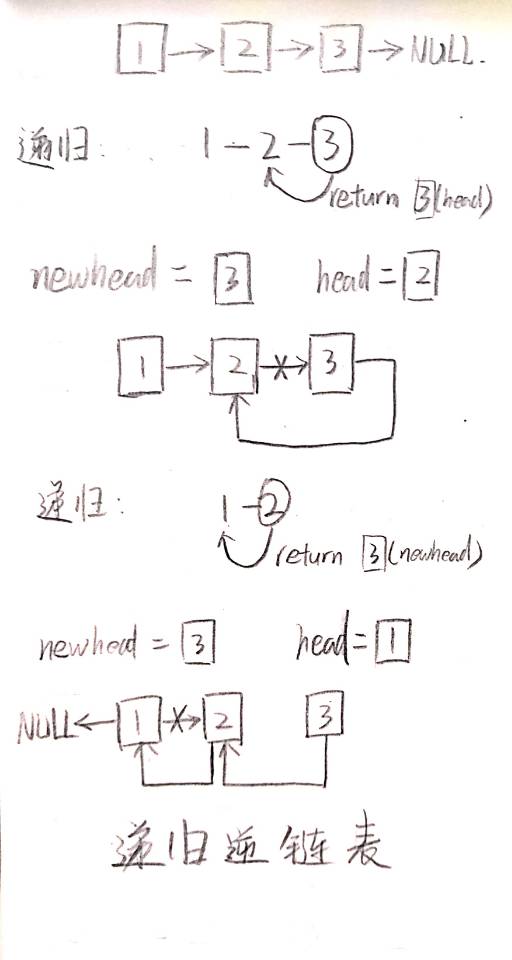 1 → 2 → 3 → NULL.
递归: 1 - 2 - 3
return 3 (head)
newhead = 3 head = 2
1 → 2 → 3
递归: 1 - 2
return 3 (newhead)
newhead = 3 head = 1
NULL ← 1 → 2 3
递归逆链表